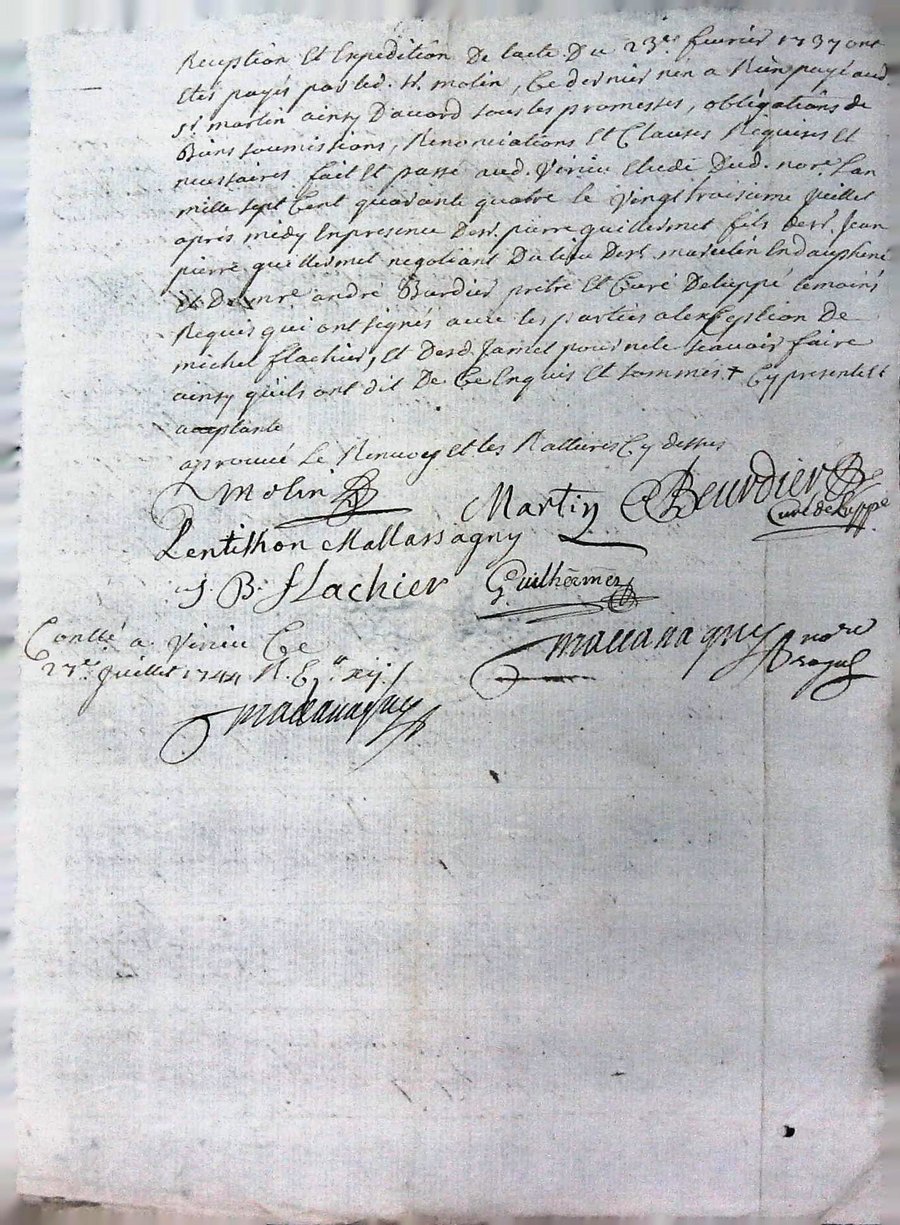 Reception Et Expedition De lacte Du 23e fevrier 1737 ont
Etés payés par led. sr. molin, Ce dernier nen a Rien payé aud
sr. martin ainsy D'accord sous les promesses, obligations de
Biens soumissions, Renonciations Et Clauses Requises Et
necessaires fait Et passé aud. Virieu Etude Dud. nore. Lan
mille sept Cent quarante quatre le Vingt troisieme Juillet
après midy En presence De sr. pierre guillermet fils de sr. Jean
pierre guillermet negotiant Du lieu De st. marcelin En dauphiné
Et De mre andré Burdier prêtre Et Curé De luppé temoins
Requis qui ont signés avec les parties a lexception de
michel flachier, Et Desd. Jamet pour ne le scavoir faire
ainsy quils ont dit De Ce Enquis Et sommés + Cy presente Et
acceptante
aprouvé Le Renvoy et les Ratures Cy dessus
Molin Martin Beurdier
Curé de Luppé
Lentilhon Mallassagny
J. B. flachier Guilhermet
Conllé a Virieu Ce
27e Juillet 1744 R. xij s